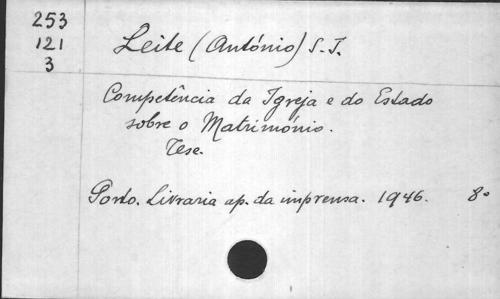 253
121
3
Leite (António) S. J.
Competência da Igreja e do Estado
sobre o Matrimónio.
Tese.
Porto. Livraria ap. da imprensa. 1946. 8º